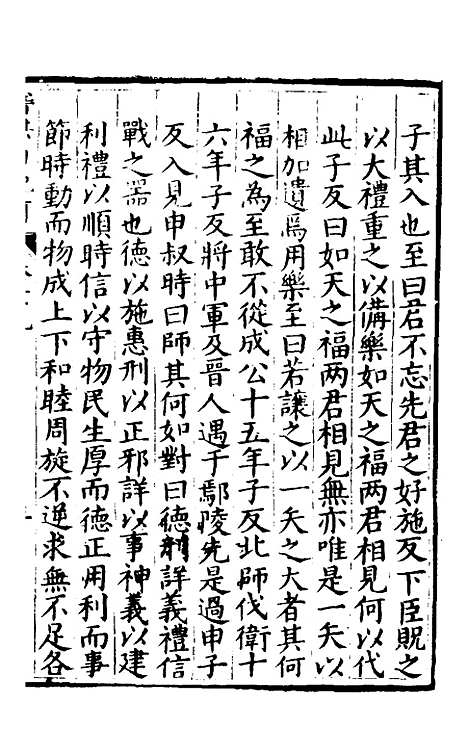 子其入也至曰君不忘先君之好施及下臣貺之
以大禮重之以備樂如天之福两君相見何以代
此子反曰如天之福两君相見無亦唯是一矢以
相加遺焉用樂至曰若讓之以一矢之大者其何
福之為至敢不從成公十五年子反北師伐衛十
六年子反將中軍及晉人遇于鄢陵先是過申子
反入見申叔時曰師其何如對曰德刑詳義禮信
戰之器也德以施惠刑以正邪詳以事神義以建
利禮以順時信以守物民生厚而德正用利而事
節時動而物成上下和睦周旋不逆求無不足各